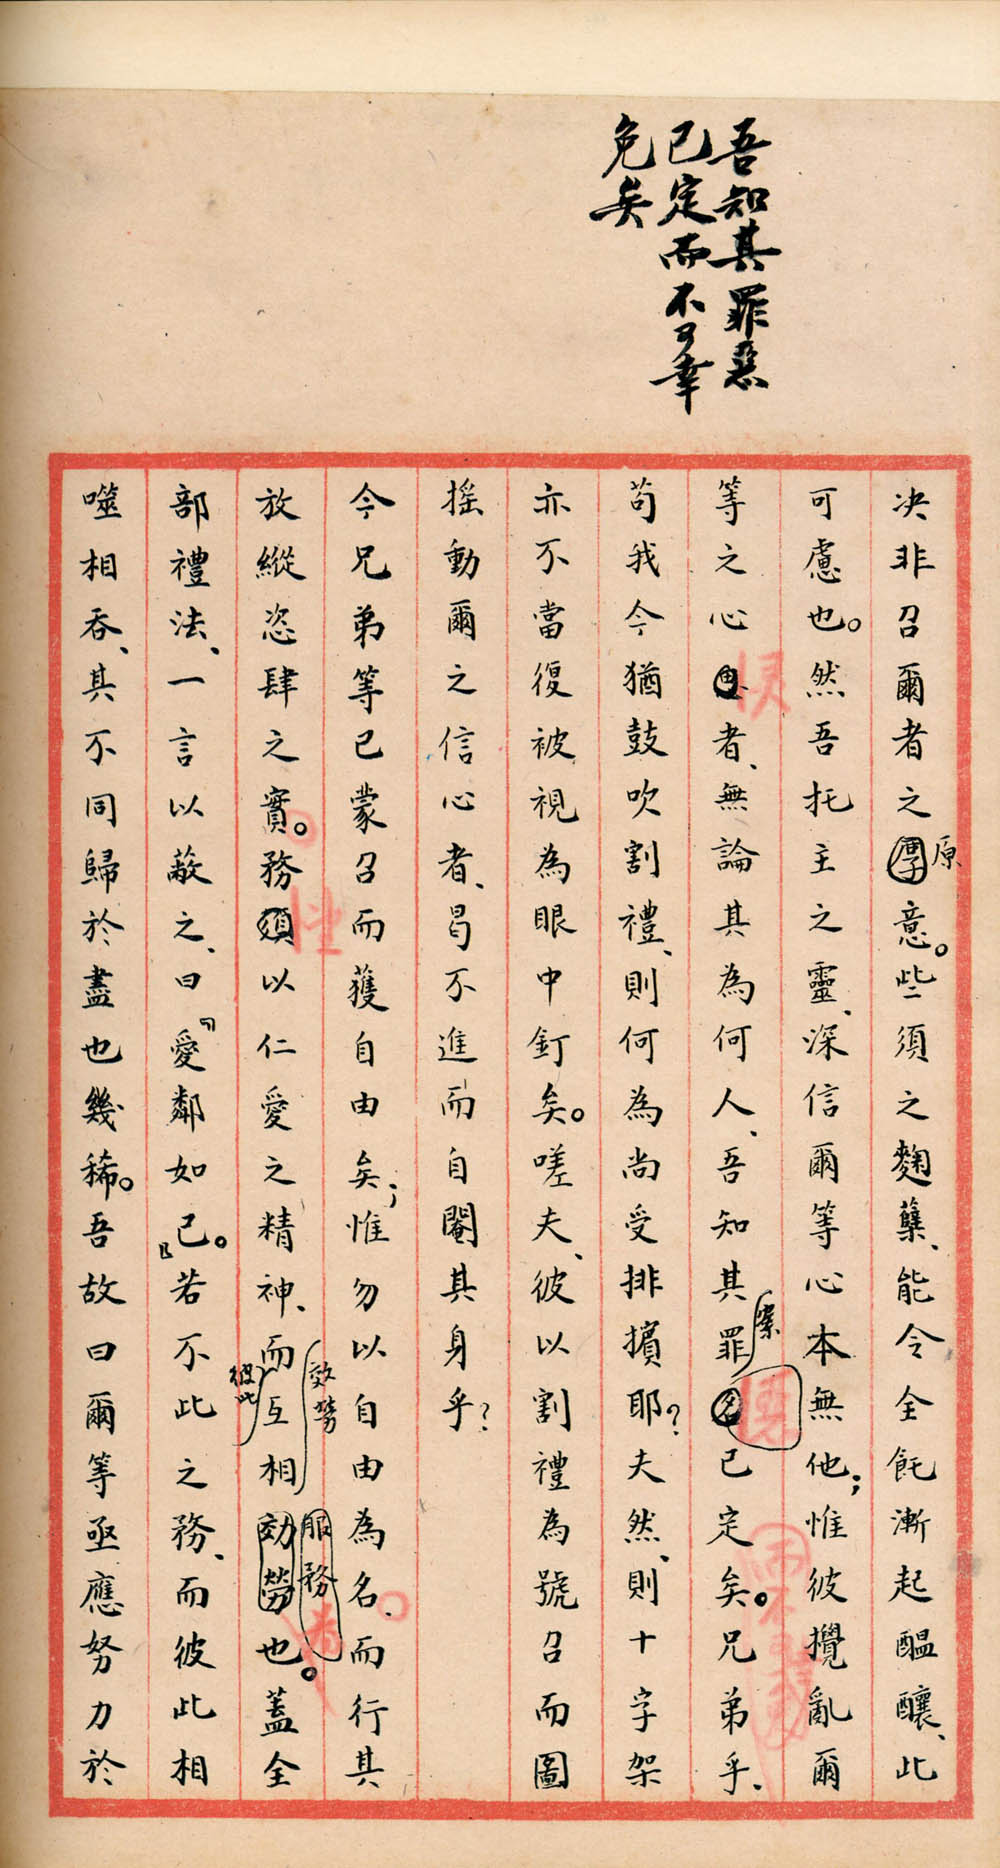 吾知其罪惡
已定而不可幸
免矣
決非召爾者之原意。些須之麴糵、能令全飥漸起醖釀、此
可慮也。然吾托主之靈、深信爾等心本無他；惟彼攪亂爾
等之心者、無論其為何人、吾知其罪案已定矣。兄弟乎、
苟我今猶鼓吹割禮、則何為尚受排擯耶？夫然、則十字架
亦不當復被視為眼中釘矣。嗟夫、彼以割禮為號召而圖
搖動爾之信心者、曷不進而自閹其身乎？
今兄弟等已蒙召而獲自由矣；惟勿以自由為名、而行其
放縱恣肆之實。務須以仁愛之精神、而互相効勞也。蓋全
彼此
效勞
服務
部禮法、一言以蔽之、曰『愛鄰如己。』若不此之務、而彼此相
噬相吞、其不同歸於盡也幾稀。吾故曰爾等亟應努力於